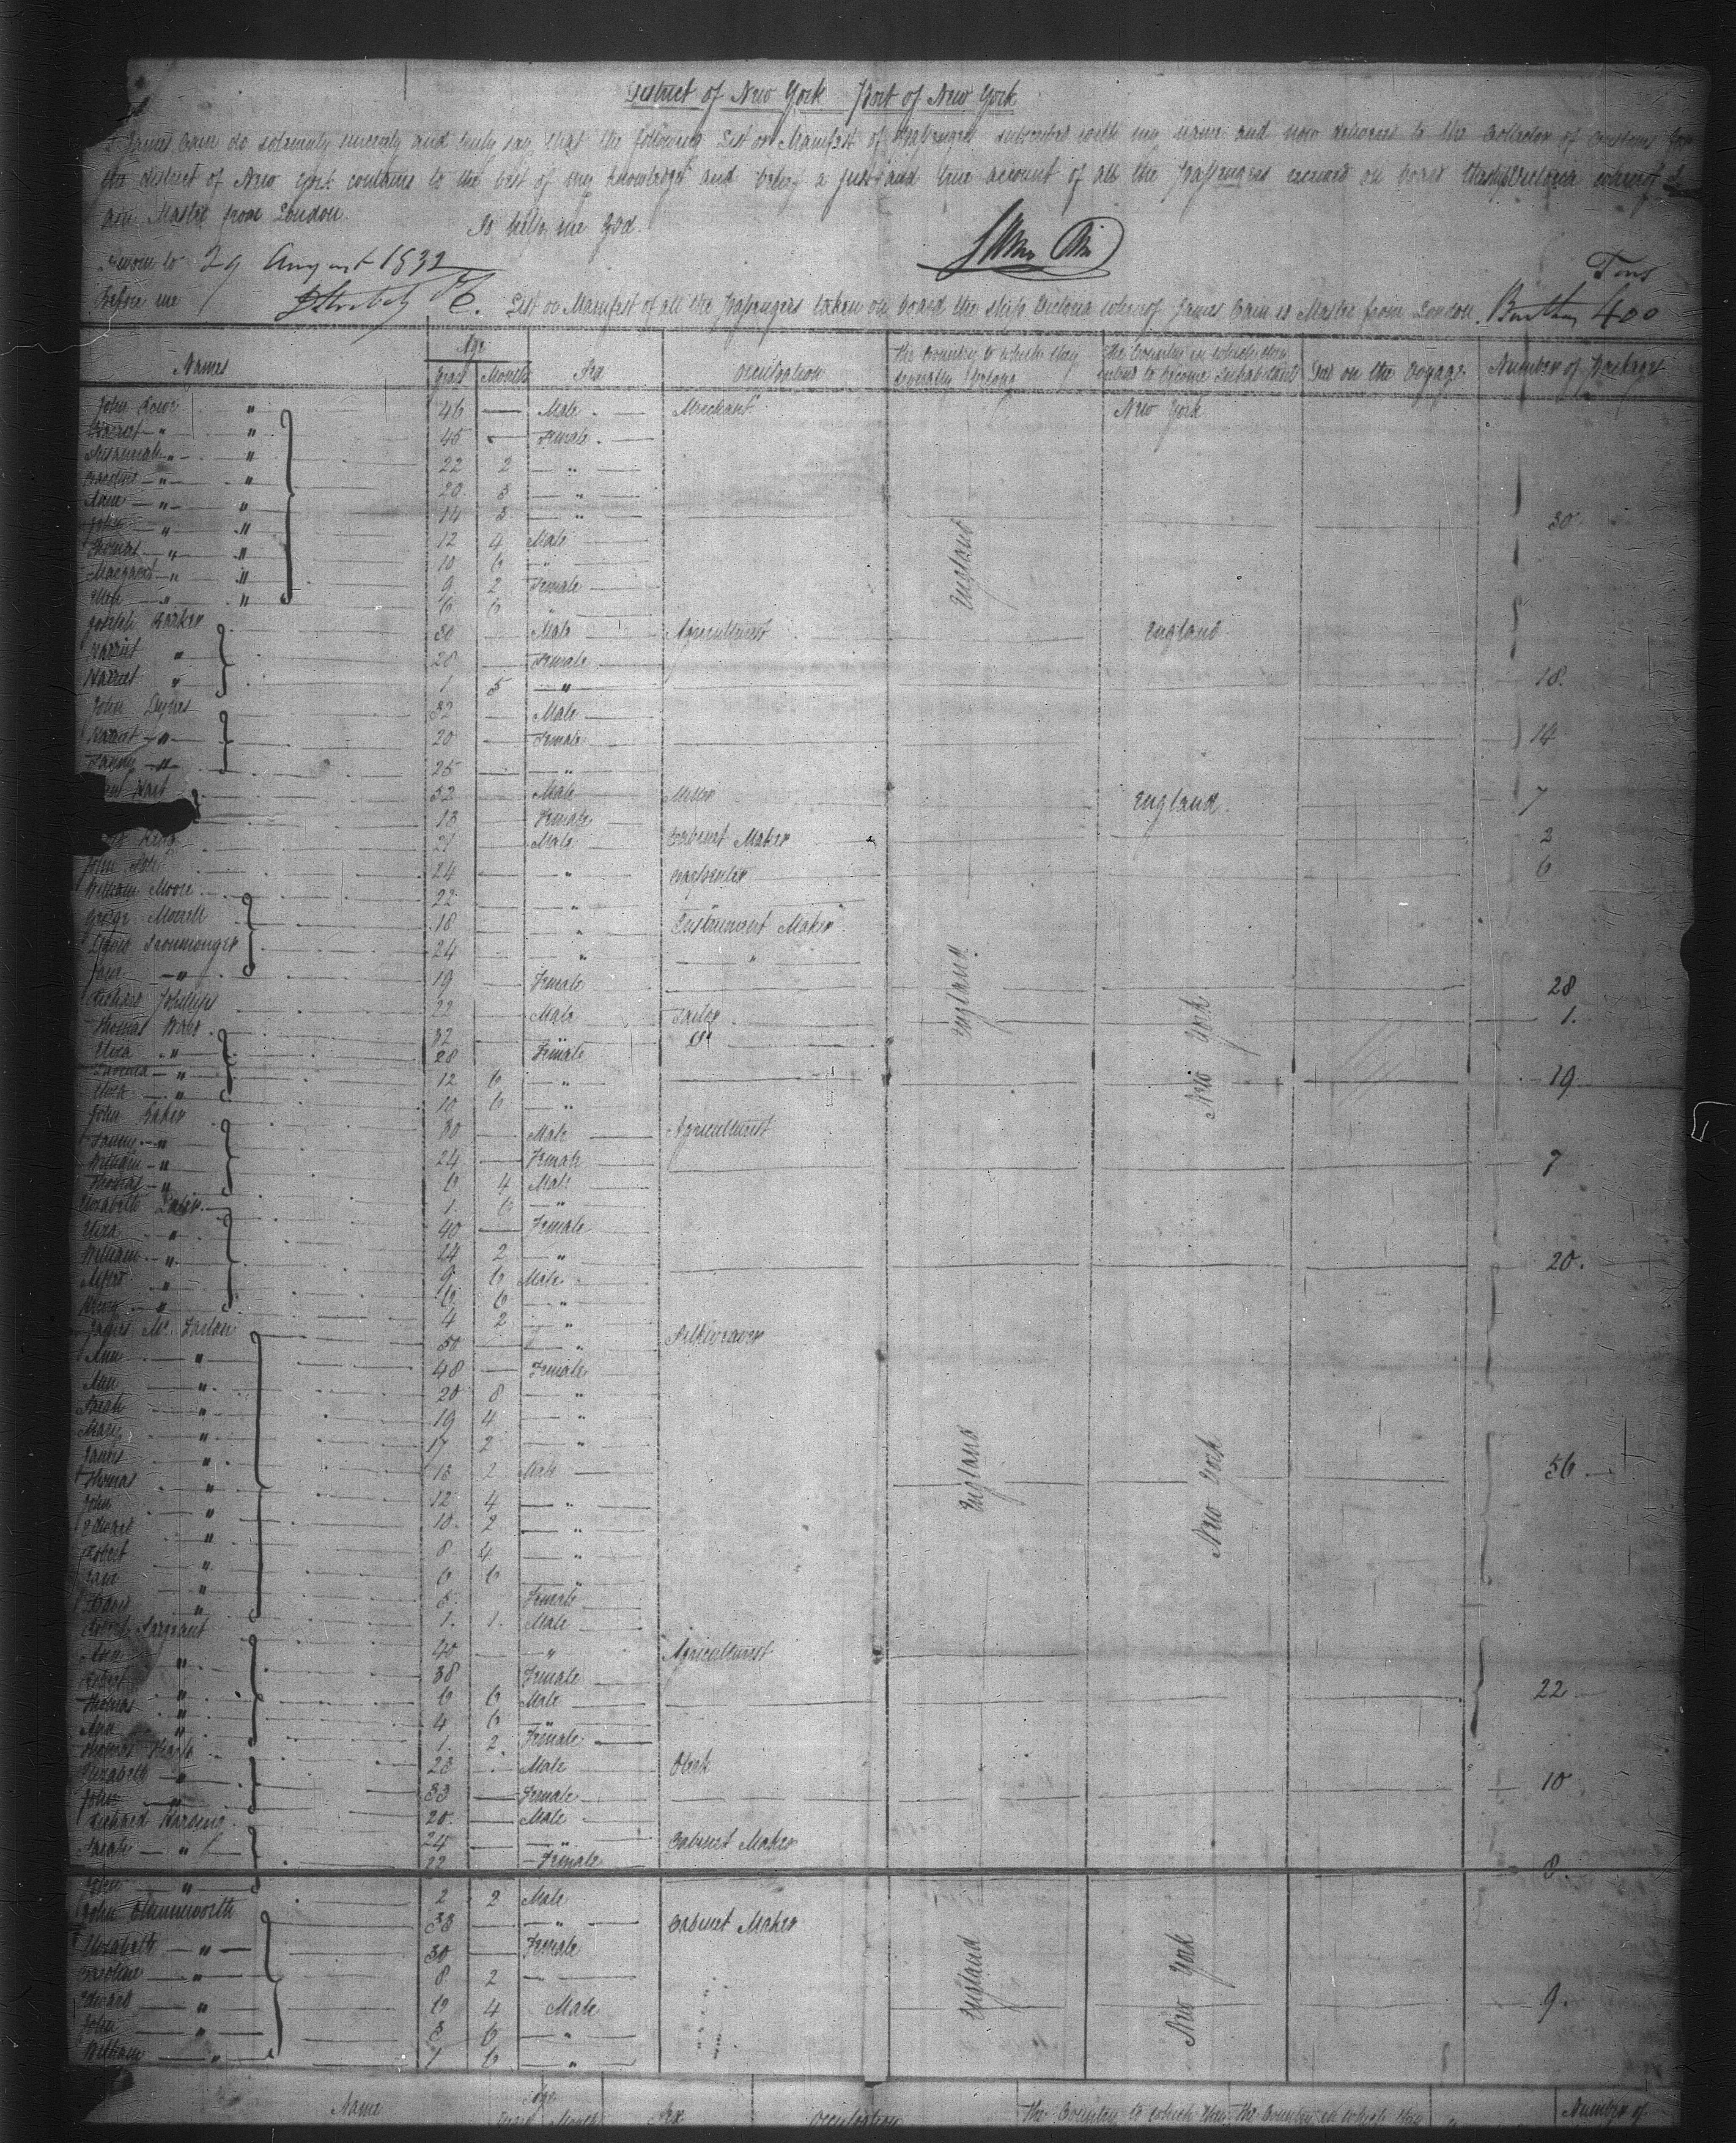 District of New York Port of New York
I James Cain do solemnly sincerely and truly say that the following List or Manifest of Passengers subscribed with my name and now delivered to the Collector of Customs for
the district of New York contains to the best of my knowledge and belief a just and true account of all the Passengers received on board the ship Victoria whereof I
am Master from London. So help me God.
Sworn to 29 August 1832
Before me
Tons
List or Manifest of all the Passengers taken on board the ship Victoria whereof James Cain is Master from London. Burthen 400
Names Age Years Months Sex Occupation The Country to which they severally belong The Country in which they intend to become Inhabitants Died on the Voyage Number of Packages
John " 46 — Male Merchant New York
Harriet " " 45 — Female
Susannah " " 22 2 "
Caroline " " 20 3 "
Jane " " 14 3 " 30
John " " 12 4 Male
Thomas " " 10 6 " England
Margaret " " 9 2 Female
Ellen " " 6 6 "
Joseph Barker 30 Male Agriculturist England
Harriet " 28 — Female
Harriet " 1 5 " 18
John Dykes 32 — Male
Harriet " 20 — Female 14
Fanny " 25 — "
Hart 32 — Male Miller England 7
18 — Female
27 — Male Cabinet Maker 2
John 24 — " Carpenter 6
William Moore 22 — "
George Morrell 18 — " Instrument Maker
David Ironmonger 24 — " "
Jane " 19 — Female England 28
Richard Phillips 22 — Male Tailor New York 1.
Thomas 32 — Do
Eliza " 28 Female
" 12 6 " 19
Eliza " 10 6 "
John Baker 30 — Male Agriculturist
Fanny " 24 — Female 7
William " 6 4 Male
Thomas " 1. 6 "
Elizabeth 40 — Female
Eliza " 14 2 "
William " 9 6 Male 20.
Alfred " 6 6 "
Henry " 4 2 "
James Mc 50 — " Silkweaver
Ann " 48 — Female
Ann " 20 8 "
Sarah " 19 4 "
Mary " 17 2 "
James " 13 2 Male England New York 56
Thomas " 12 4 "
John " 10. 2 "
Edward " 8 4 "
Robert " 6 6 "
Jane " 5. Female
David " 1. 1. Male
Robert Sargeant 40 — " Agriculturist
Ann " 38 Female
Robert " 6 6 Male 22
Thomas " 4 6 "
Ann " 1. 2 Female
Thomas 23 . Male Clerk
Elizabeth " 33 — Female 10
John " 20. — Male
Richard Harding 24 — " Cabinet Maker
Sarah " 22 — Female 8.
John " 2 2 Male
John 33 — " Cabinet Maker
Elizabeth " 30 — Female
Caroline " 8 2 England New York
Edward " 6 4 Male 9.
John " 3 6 "
William " 1 6 "
Name Age Years Months Sex Occupation The Country to which they The Country in which they Number of